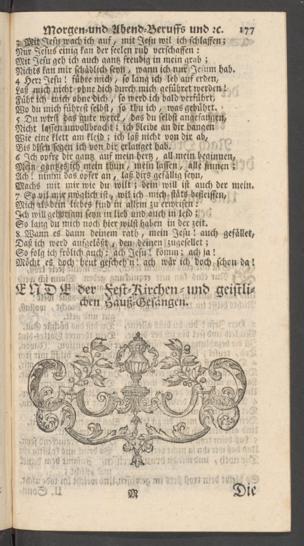 Morgen-und Abend-Beruffs und ꝛc. 177
3 Mit Jesu wach ich auf, mit Jesu wil ich schlaffen;
Nur Jesus einig kan der seelen ruh verschaffen:
Mit Jesu geh ich auch gantz freudig in mein grab;
Nichts kan mir schädlich seyn, wann ich nur Jesum hab.
4 Herr Jesu! führe mich, so lang ich leb auf erden,
Laß mich nicht ohne dich durch mich geführet werden!
Führ ich mich ohne dich, so werd ich bald verführt,
Wo du mich führest selbst, so thu ich, was gebührt.
5 Du wirst das gute werck, das du selbst angefangen,
Nicht lassen unvollbracht; ich bleibe an dir hangen
Wie eine klett am kleid; ich laß nicht von dir ab,
Biß daß segen ich von dir erlanget hab.
6 Ich opfre dir gantz auf mein hertz, all mein beginnen,
Mein gantzes ich mein thun, mein lassen, alle sinnen:
Ach! nimm das opfer an, laß dirs gefällig seyn,
Machs mit mir wie du willt; dein will ist auch der mein.
7 So vil mir müglich ist, will ich mich stäts befleissen,
Mich als dein liebes kind in allem zu erweisen:
Ich will gehorsam seyn in lieb und auch in leid:
So lang du mich noch hier willst haben in der zeit.
8 Wann es dann deinem rath, mein Jesu! auch gefället,
Daß ich werd aufgelößt, den deinen zugesellet;
So folg ich frölich auch: ach Jesu! komm; ach ja!
Möcht es doch heut gescheh'n! ach wär ich doch schon da!
ENDE der Fest-Kirchen- und geistli-
chen Hauß-Gesängen.
M Die